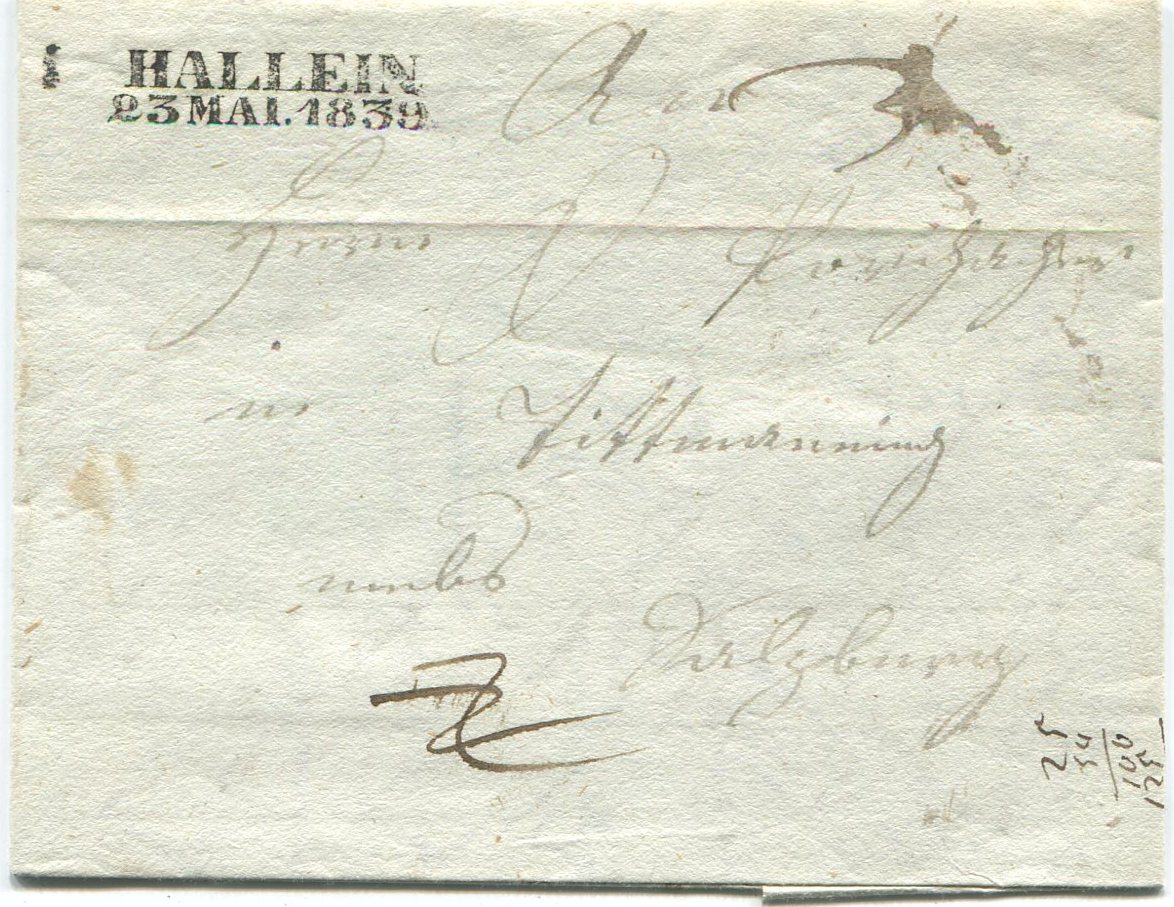 HALLEIN
23 MAI. 1839
An
Herrn
in Tittmanning
Salzburg
25
50
100
125